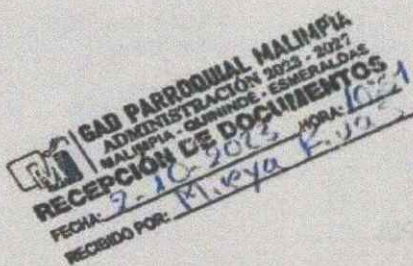 GAD PARROQUIAL MALIMPIA
ADMINISTRACIÓN 2023 - 2027
MALIMPIA - QUININDE - ESMERALDAS
RECEPCIÓN DE DOCUMENTOS
FECHA: 2-10-2023 HORA: 10:21
RECIBIDO POR: Mireya